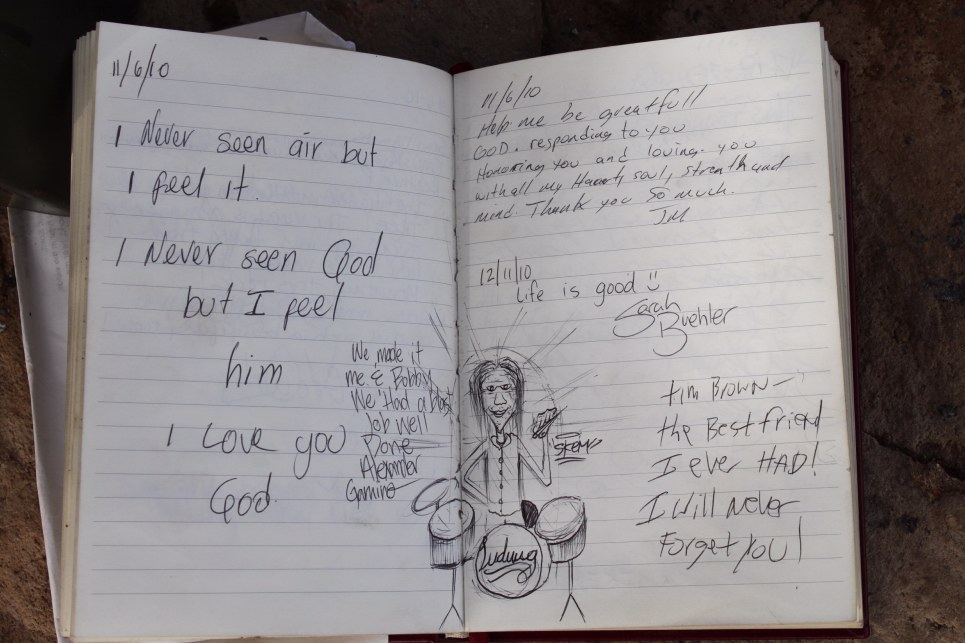 11/6/10
I Never seen air but
I feel it.
I Never seen God
but I feel
him
I Love you
God.
We made it
me & Bobby
We Had a blast
Job well
Done
Alexander
11/6/10
Help me be greatfull
GOD. responding to you
Honoring you and loving. you
with all my Heart, soul, strenth and
mind. Thank you So much.
JM
12/11/10
Life is good
Sarah
Buehler
Tim Brown—
the Best friend
I ever HAD!
I will never
Forget you!
Ludwig